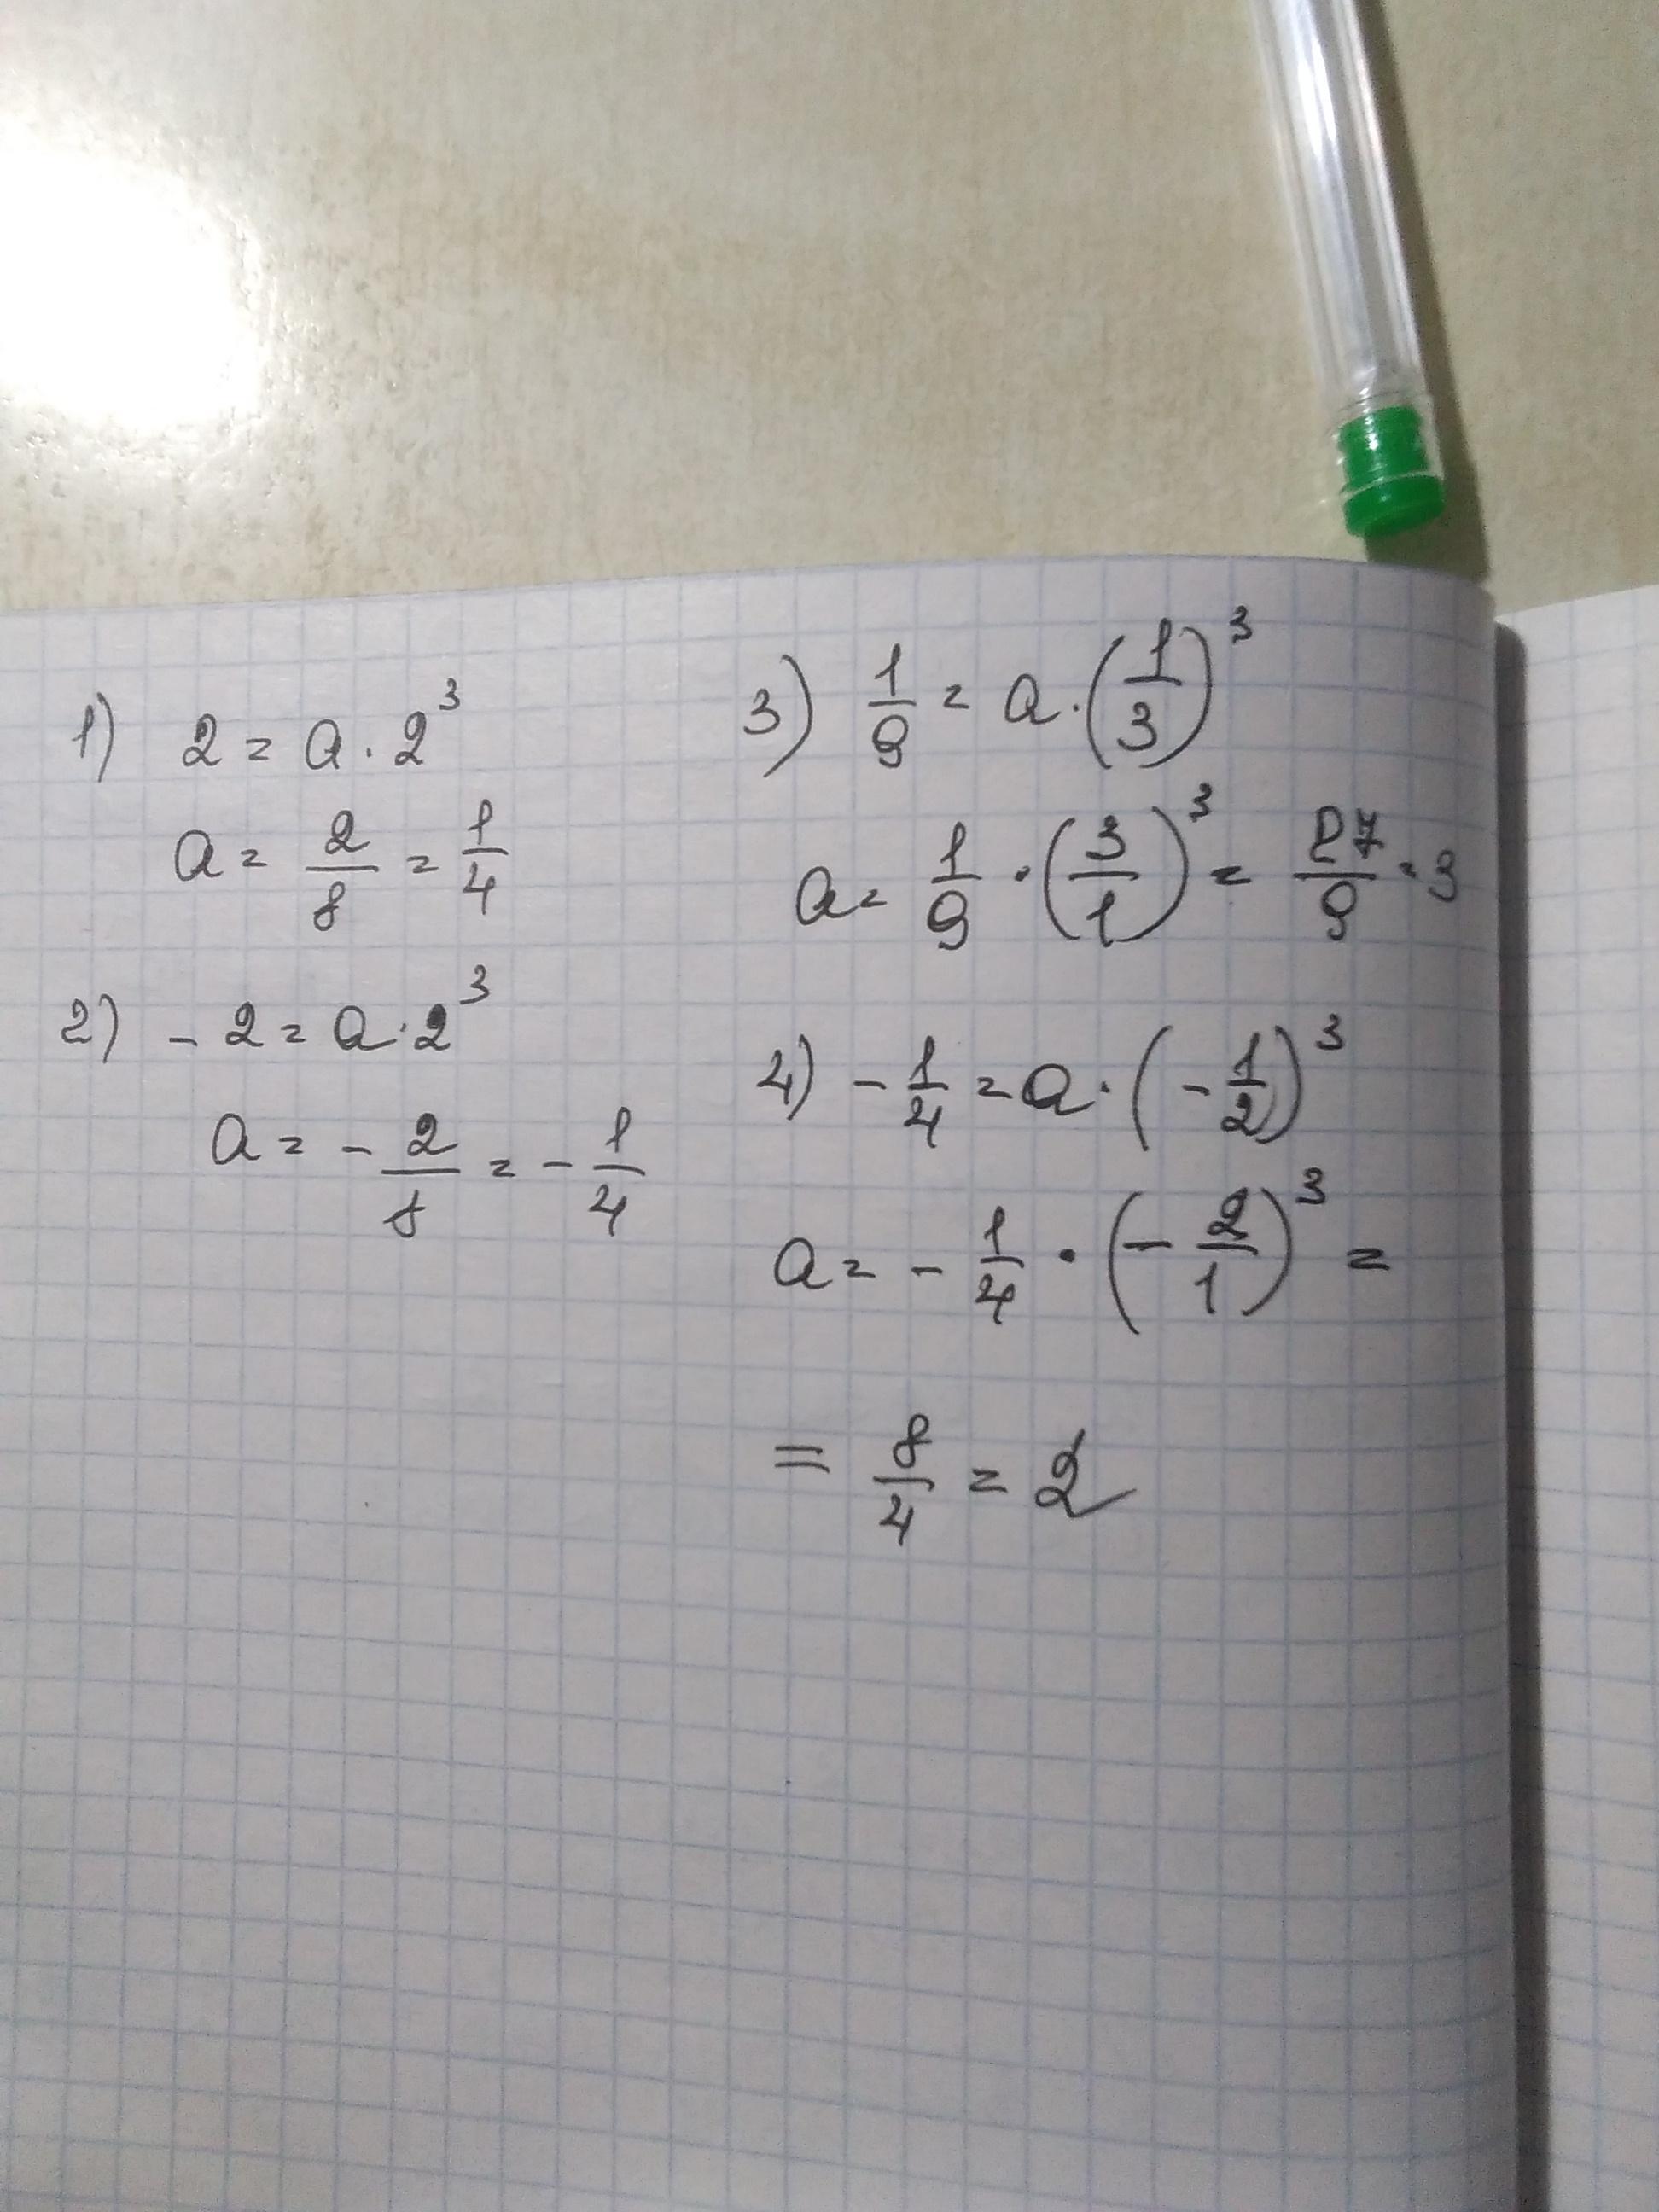 1) 2 = a · 2³
a = 2/8 = 1/4
2) - 2 = a · 2³
a = - 2/8 = - 1/4
3) 1/9 = a · (1/3)³
a = 1/9 · (3/1)³ = 27/9 = 3
4) - 1/4 = a · (- 1/2)³
a = - 1/4 · (- 2/1)³ =
= 8/4 = 2